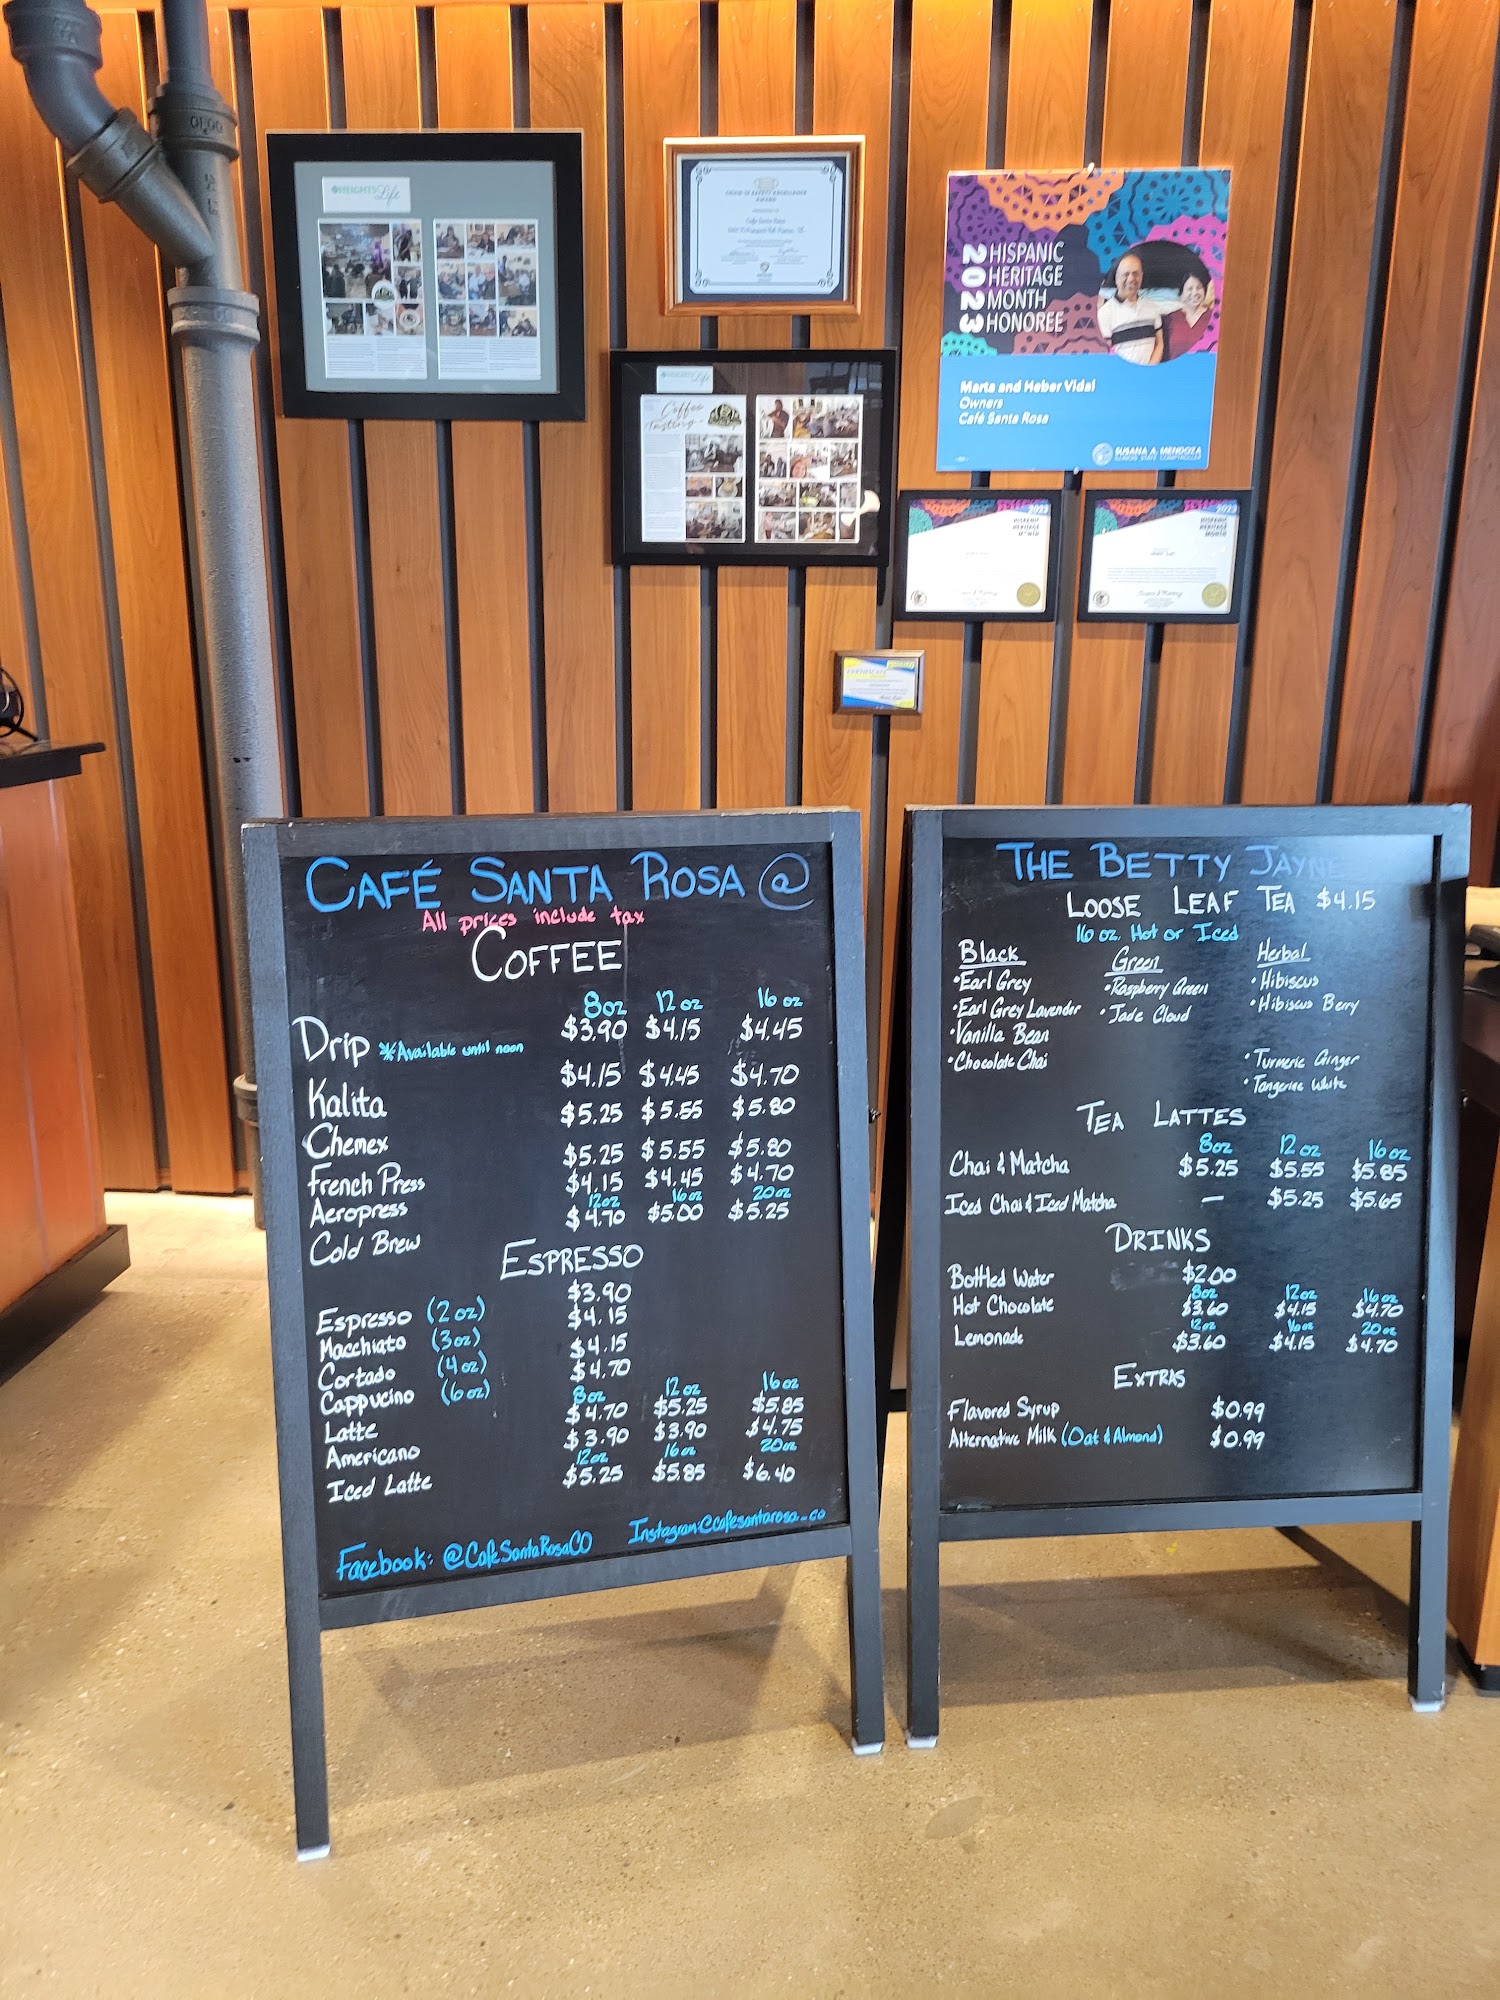 HEIGHTS Life
COVID-19 SAFETY EXCELLENCE
AWARD
Café Santa Rosa
Coffee
Tasting
2023
HISPANIC
HERITAGE
MONTH
HONOREE
Marta and Heber Vidal
Owners
Café Santa Rosa
SUSANA A. MENDOZA
ILLINOIS STATE COMPTROLLER
2023
HISPANIC
HERITAGE
MONTH
2023
HISPANIC
HERITAGE
MONTH
CERTIFICATE
CAFÉ SANTA ROSA @
All prices include tax
COFFEE
8oz 12 oz 16 oz
Drip *Available until noon $3.90 $4.15 $4.45
Kalita $4.15 $4.45 $4.70
Chemex $5.25 $5.55 $5.80
French Press $5.25 $5.55 $5.80
Aeropress $4.15 $4.45 $4.70
12oz 16oz 20oz
Cold Brew $4.70 $5.00 $5.25
ESPRESSO
Espresso (2oz) $3.90
Macchiato (3oz) $4.15
Cortado (4oz) $4.15
Cappucino (6oz) $4.70
8oz 12oz 16oz
Latte $4.70 $5.25 $5.85
Americano $3.90 $3.90 $4.75
12oz 16oz 20oz
Iced Latte $5.25 $5.85 $6.40
Facebook: @CafeSantaRosaCO Instagram:@cafesantarosa_co
THE BETTY JAYNE
LOOSE LEAF TEA $4.15
16 oz. Hot or Iced
Black Green Herbal
•Earl Grey •Raspberry Green •Hibiscus
•Earl Grey Lavender •Jade Cloud •Hibiscus Berry
•Vanilla Bean
•Chocolate Chai •Turmeric Ginger
•Tangerine White
TEA LATTES
8oz 12oz 16oz
Chai & Matcha $5.25 $5.55 $5.85
Iced Chai & Iced Matcha — $5.25 $5.65
DRINKS
Bottled Water $2.00
8oz 12oz 16oz
Hot Chocolate $3.60 $4.15 $4.70
12oz 16oz 20oz
Lemonade $3.60 $4.15 $4.70
EXTRAS
Flavored Syrup $0.99
Alternative Milk (Oat & Almond) $0.99